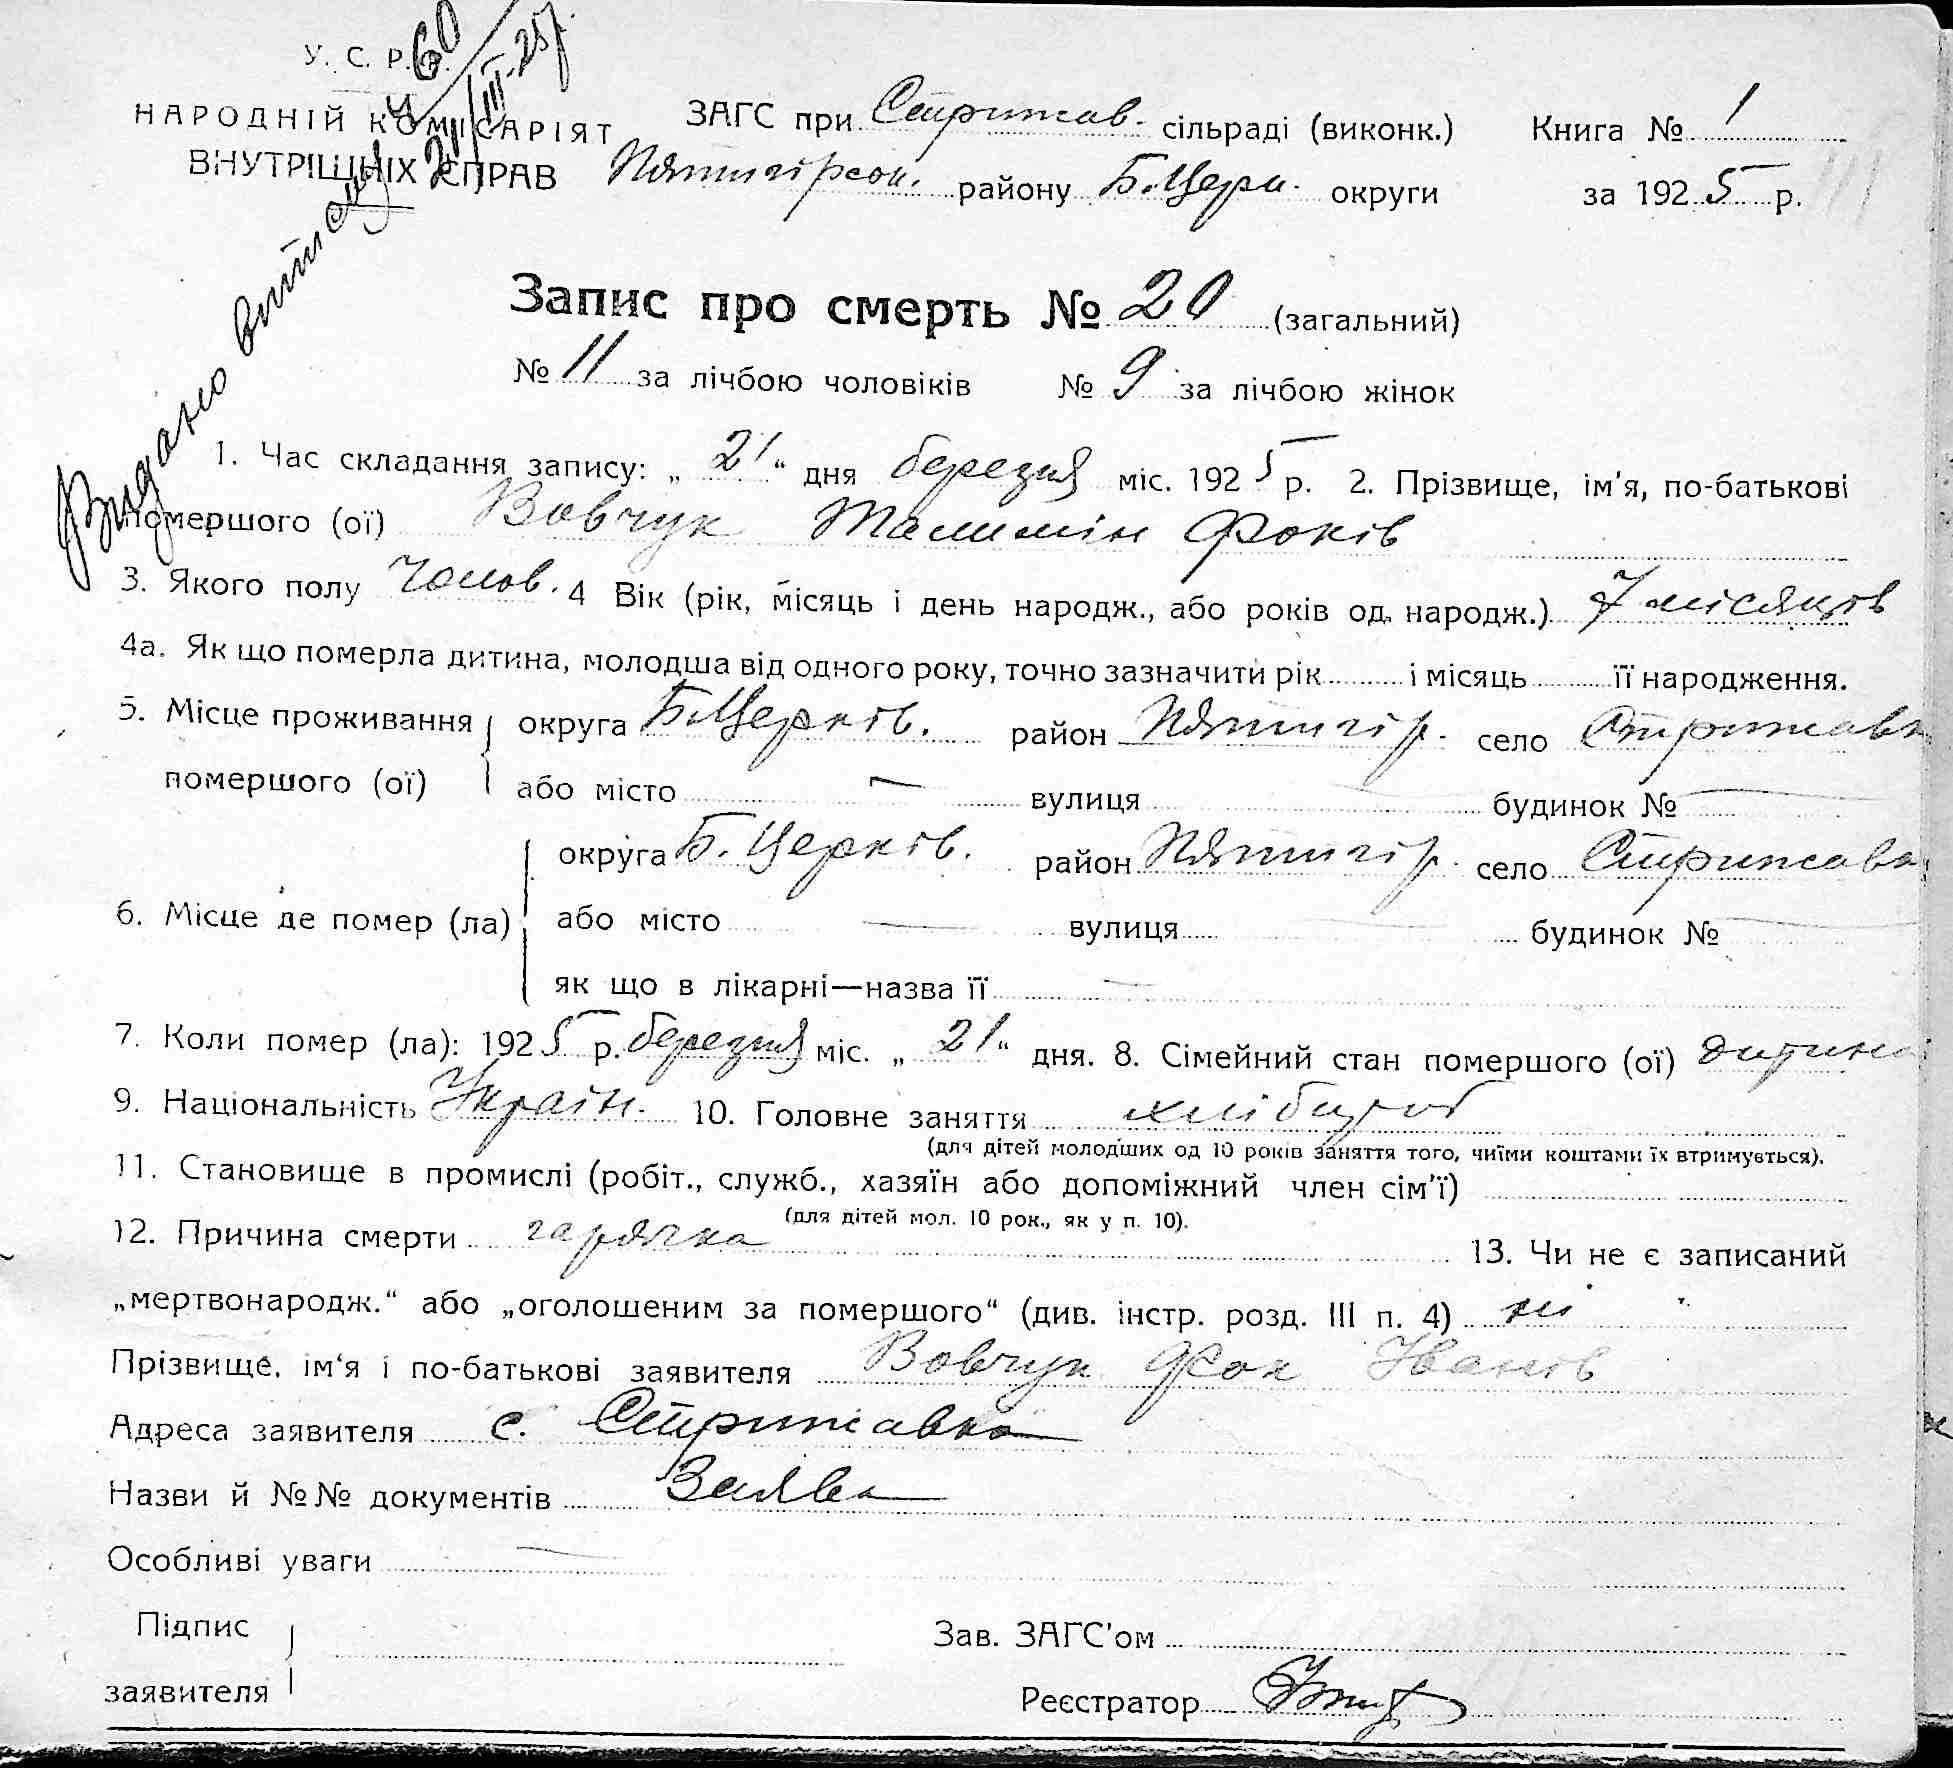 У. С. Р. Р.
НАРОДНІЙ КОМІСАРІЯТ
ВНУТРІШНІХ СПРАВ
Видано витяг ч 60
21/III-25р.
ЗАГС при Стрижав. сільраді (виконк.) Книга № 1
Пятигірсок. району Б.Церк. округи за 1925 р.
Запис про смерть № 20 (загальний)
№ 11 за лічбою чоловіків № 9 за лічбою жінок
1. Час складання запису: „21“ дня березня міс. 1925 р. 2. Прізвище, ім'я, по-батькові
помершого (ої) Вовчук Фоків
3. Якого полу Чолов. 4 Вік (рік, місяць і день народж., або років од. народж.) 7 місяців
4а. Як що померла дитина, молодша від одного року, точно зазначити рік і місяць її народження.
5. Місце проживання помершого (ої) округа Б.Церків. район Пятигір. село Стрижавка
або місто — вулиця будинок № —
6. Місце де помер (ла) округа Б. Церків. район Пятигір. село Стрижавка
або місто — вулиця будинок № —
як що в лікарні—назва її —
7. Коли помер (ла): 1925 р. березня міс. „21“ дня. 8. Сімейний стан помершого (ої) дитина
9. Національність Україн. 10. Головне заняття хлібороб
(для дітей молодших од 10 років заняття того, чиїми коштами їх втримується).
11. Становище в промислі (робіт., служб., хазяїн або допоміжний член сім'ї)
(для дітей мол. 10 рок., як у п. 10).
12. Причина смерти гарячка 13. Чи не є записаний
„мертвонародж.“ або „оголошеним за помершого“ (див. інстр. розд. III п. 4) ні
Прізвище, ім'я і по-батькові заявителя Вовчук Фок Іванів
Адреса заявителя с. Стрижавка
Назви й №№ документів Заява
Особливі уваги —
Підпис заявителя
Зав. ЗАГС'ом
Реєстратор